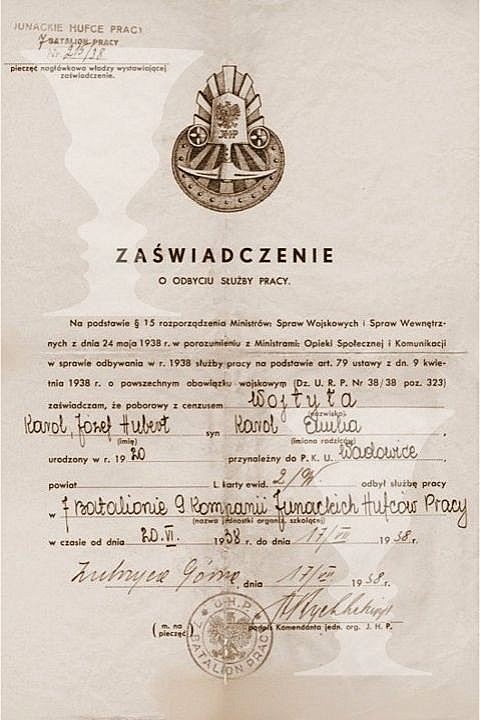 JUNACKIE HUFCE PRACY
7 BATALION PRACY
Nr. 213/38
pieczęć nagłówkowa władzy wystawiającej
zaświadczenie.
JHP
ZAŚWIADCZENIE
O ODBYCIU SŁUŻBY PRACY.
Na podstawie § 15 rozporządzenia Ministrów: Spraw Wojskowych i Spraw Wewnętrz-
nych z dnia 24 maja 1938 r. w porozumieniu z Ministrami: Opieki Społecznej i Komunikacji
w sprawie odbywania w r. 1938 służby pracy na podstawie art. 79 ustawy z dn. 9 kwiet-
nia 1938 r. o powszechnym obowiązku wojskowym (Dz. U. R. P. Nr 38/38 poz. 323)
zaświadczam, że poborowy z cenzusem Wojtyła
(nazwisko)
Karol, Józef Hubert syn Karol Emilia
(imię) (imiona rodziców)
urodzony w r. 1920 przynależny do P. K. U. Wadowice
powiat L. karty ewid. odbył służbę pracy
w 7 Baltalionie 9 Kompanii Junackich Hufców Pracy
(nazwa jednostki organiz. szkolącej)
w czasie od dnia 20.VI. 1938 r. do dnia 17/VII 1938 r.
Zubrzyca Górna, dnia 17/VII 1938 r.
(m. na
pieczęć)
podpis Komendanta jedn. org. J. H. P.
U.H.P.
7 BATALION PRACY